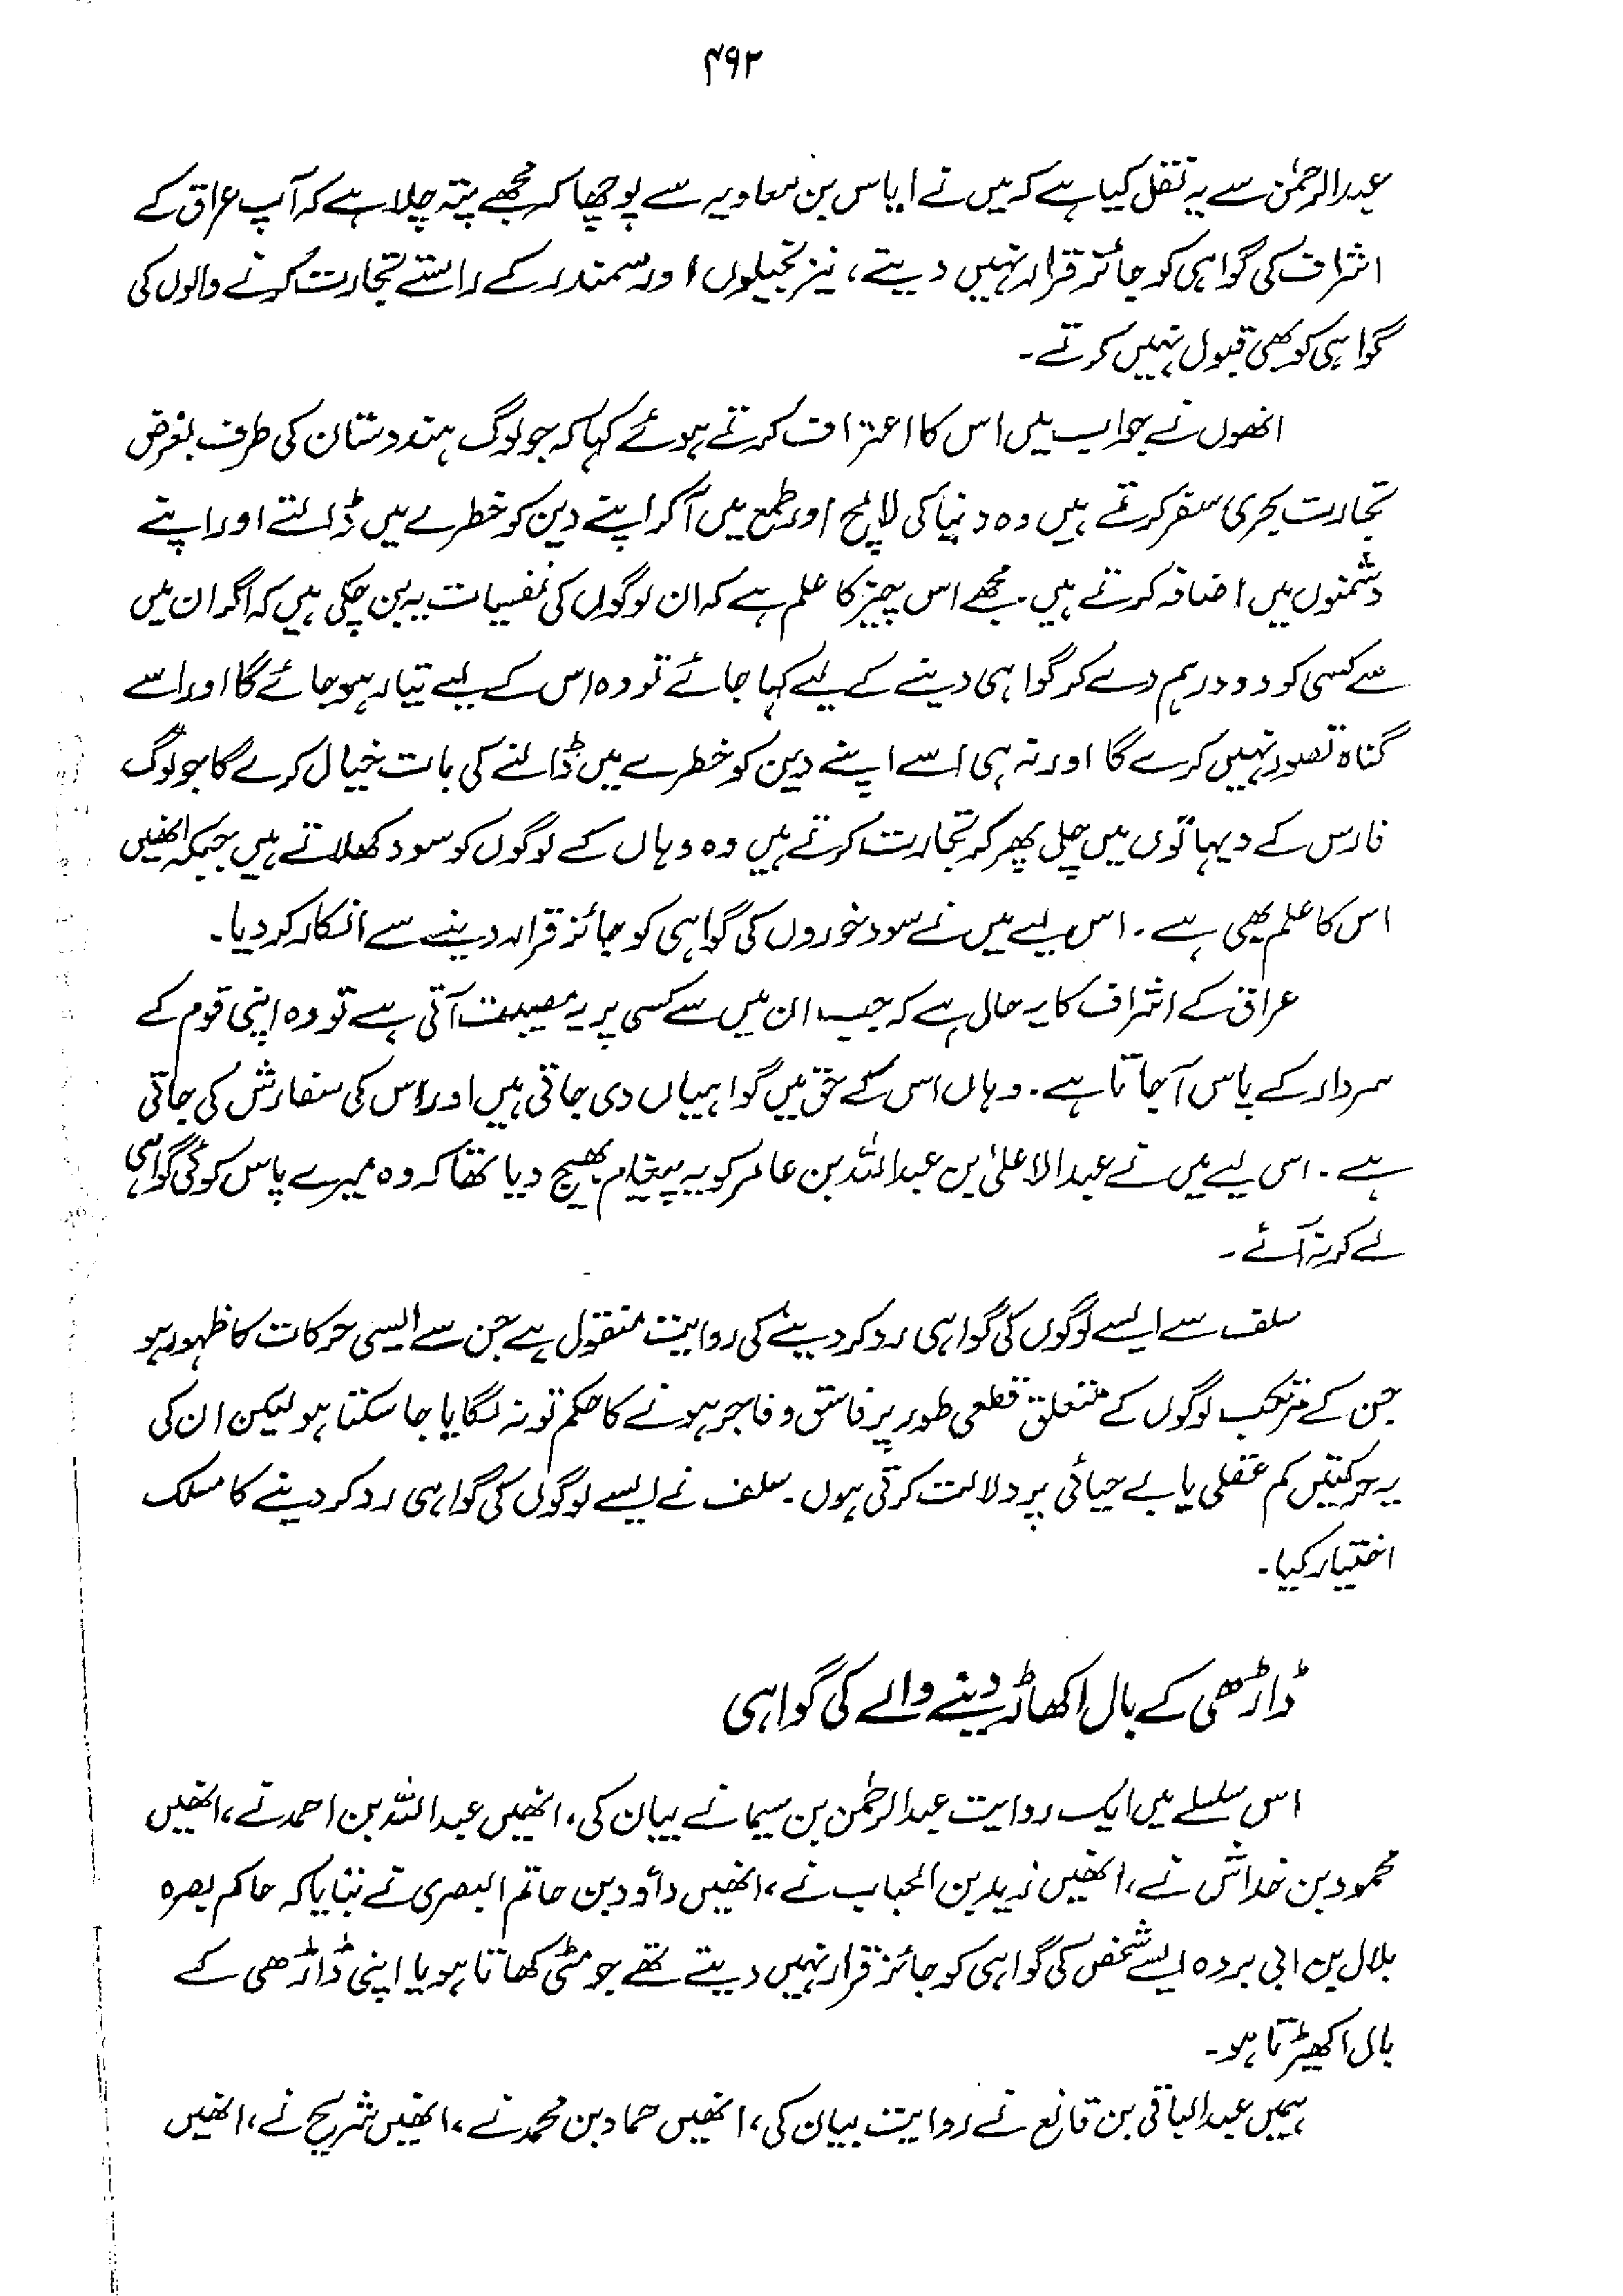 ۴۹۲
عبدالرحمٰن سے یہ نقل کیا ہے کہ میں نے ایاس بن معاویہ سے پوچھا کہ مجھے پتہ چلا ہے کہ آپ عراق کے
اشراف کی گواہی کو جائز قرار نہیں دیتے، نیز بخیلوں اور سمندر کے راستے تجارت کرنے والوں کی
گواہی کو بھی قبول نہیں کرتے۔
انھوں نے جواب میں اس کا اعتراف کرتے ہوئے کہا کہ جو لوگ ہندوستان کی طرف بغرض
تجارت بحری سفر کرتے ہیں وہ دنیا کی لالچ اور طمع میں آکر اپنے دین کو خطرے میں ڈالتے اور اپنے
دشمنوں میں اضافہ کرتے ہیں۔ مجھے اس چیز کا علم ہے کہ ان لوگوں کی نفسیات یہ بن چکی ہیں کہ اگر ان میں
سے کسی کو دو درہم دے کر گواہی دینے کے لیے کہا جائے تو وہ اس کے لیے تیار ہو جائے گا اور اسے
گناہ تصور نہیں کرے گا اور نہ ہی اسے اپنے دین کو خطرے میں ڈالنے کی بات خیال کرے گا جو لوگ
فارس کے دیہاتوں میں چل پھر کر تجارت کرتے ہیں وہ وہاں کے لوگوں کو سود کھلاتے ہیں جبکہ انھیں
اس کا علم بھی ہے۔ اس لیے میں نے سود خوروں کی گواہی کو جائز قرار دینے سے انکار کر دیا۔
عراق کے اشراف کا یہ حال ہے کہ جب ان میں سے کسی پر یہ مصیبت آتی ہے تو وہ اپنی قوم کے
سردار کے پاس آجاتا ہے۔ وہاں اس کے حق میں گواہیاں دی جاتی ہیں اور اس کی سفارش کی جاتی
ہے۔ اسی لیے میں نے عبدالاعلیٰ بن عبداللہ بن عامر کو یہ پیغام بھیج دیا تھا کہ وہ میرے پاس کوئی گواہی
لے کر نہ آئے۔
سلف سے ایسے لوگوں کی گواہی رد کر دینے کی روایت منقول ہے جن سے ایسی حرکات کا ظہور ہو
جن کے مرتکب لوگوں کے متعلق قطعی طور پر فاسق و فاجر ہونے کا حکم تو نہ لگایا جا سکتا ہو لیکن ان کی
یہ حرکتیں کم عقلی یا بے حیائی پر دلالت کرتی ہوں۔ سلف نے ایسے لوگوں کی گواہی رد کر دینے کا مسلک
اختیار کیا۔
ڈاڑھی کے بال اکھاڑ دینے والے کی گواہی
اس سلسلے میں ایک روایت عبدالرحمٰن بن سیما نے بیان کی، انھیں عبداللہ بن احمد نے، انھیں
محمود بن خداش نے، انھیں زید بن الحباب نے، انھیں داؤد بن حاتم البصری نے بتایا کہ حاکم بصرہ
بلال بن ابی بردہ ایسے شخص کی گواہی کو جائز قرار نہیں دیتے تھے جو مٹی کھاتا ہو یا اپنی ڈاڑھی کے
بال اکھیڑتا ہو۔
ہمیں عبدالباقی بن قانع نے روایت بیان کی، انھیں حماد بن محمد نے، انھیں شریح نے، انھیں